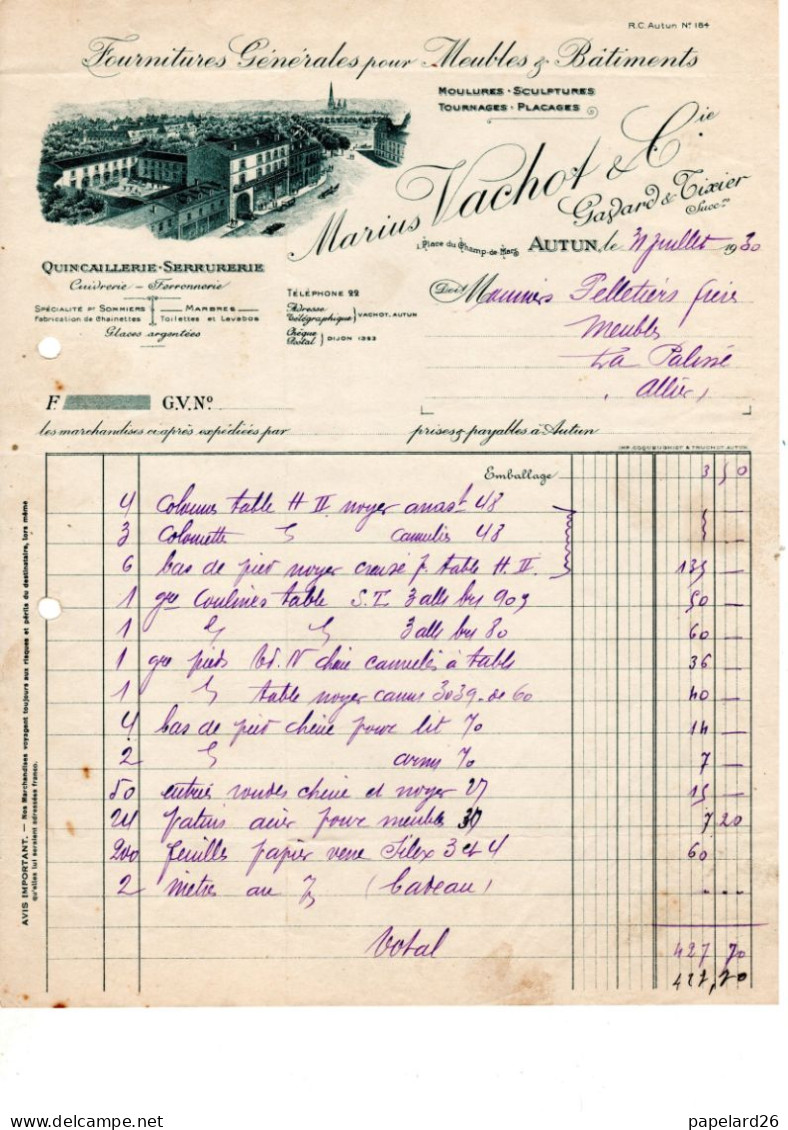 R.C. Autun No 184
Fournitures Générales pour Meubles & Bâtiments
Moulures - Sculptures
Tournages - Placages
Marius Vachot & Cie
Gavard & Tixier
Succrs
1, Place du Champ-de-Mars
Autun, le 31 Juillet 1930
Quincaillerie - Serrurerie
Cuivrerie - Ferronnerie
Spécialité pr Sommiers
Fabrication de Chaînettes
Marbres
Toilettes et Lavabos
Glaces argentées
Téléphone 22
Adresse Télégraphique } Vachot. Autun
Chèque Postal } Dijon 1393
Doit
Pelletiers frère
Meubles
La Palisse
Allier
F. G.V. No
les marchandises ci-après expédiées par prises & payables à Autun
Emballage 3 50
4 colonnes table H II noyer 48
3 colonnette " 48
6 bas de pied noyer creusé p. table H. II. 135 —
1 gre coulines table S.T. 3 alls 50 —
1 " " 3 alls 80 60 —
1 gre pieds chêne cannelés à table 36 —
1 " table noyer 3039 de 60 40 —
4 bas de pied chêne pour lit 70 14 —
2 " 70 7 —
50 entrées rondes chêne et noyer 27 15 —
24 patins acier pour meubles 7 20
200 feuilles papier verre Silex 3 et 4 60
2 mètres au (Cadeau)
Total 427 70
427,70
AVIS IMPORTANT. — Nos Marchandises voyagent toujours aux risques et périls du destinataire, lors même
qu'elles lui seraient adressées franco.
papelard26